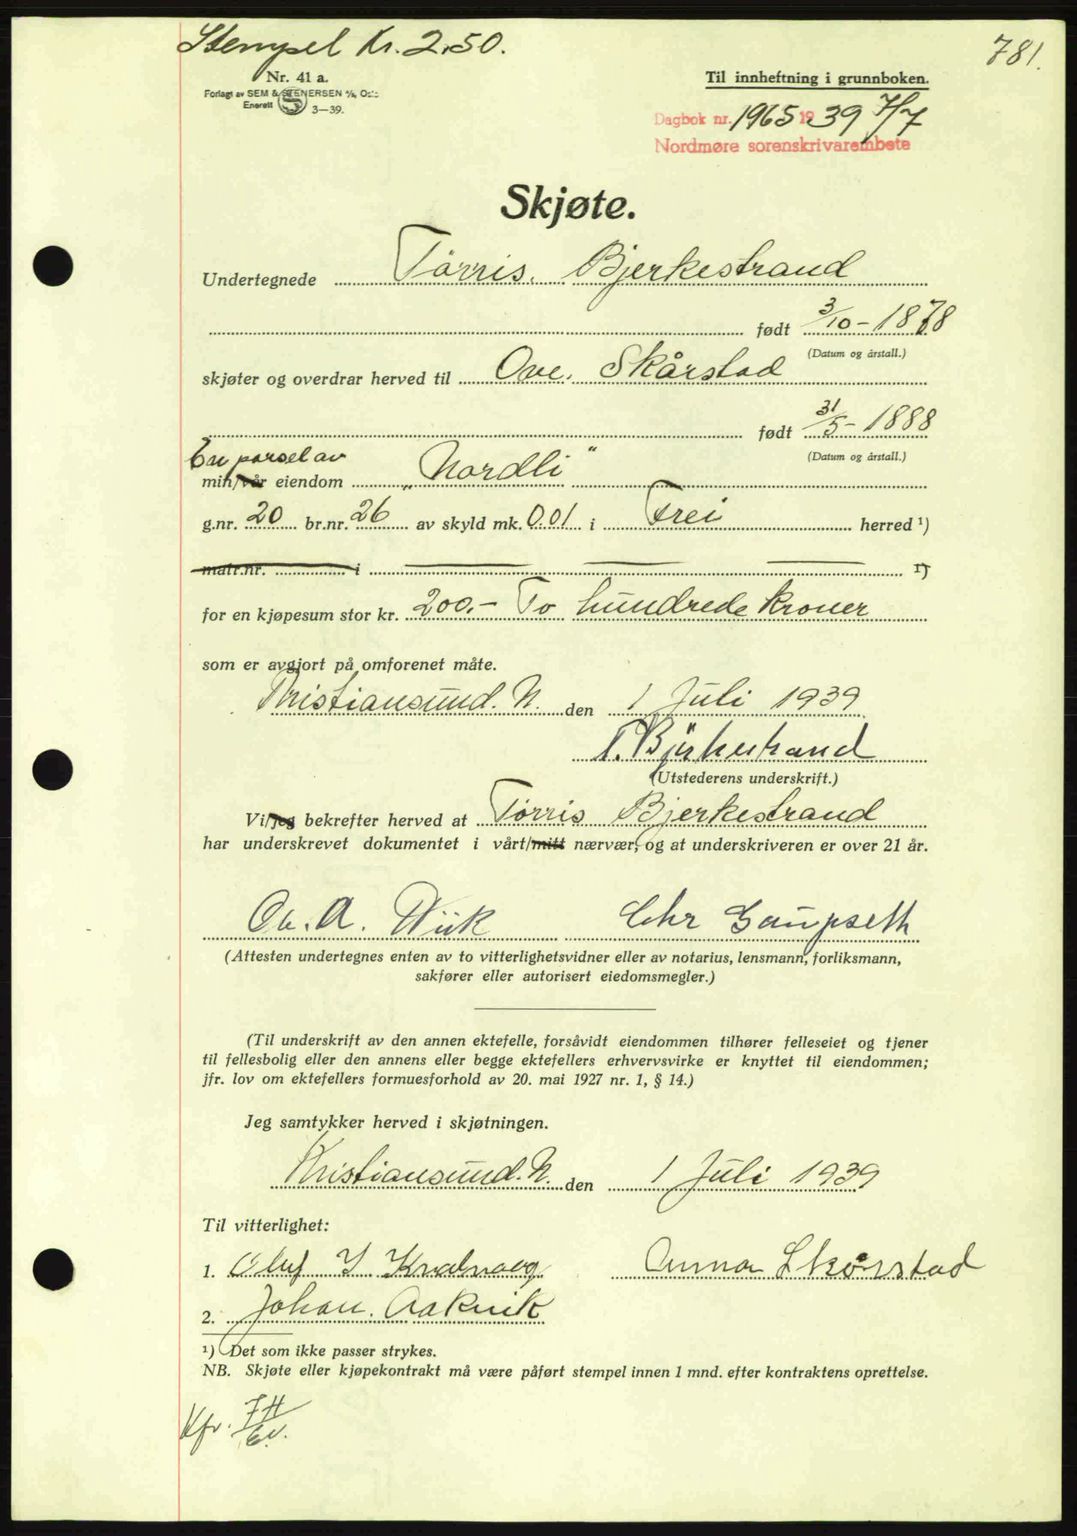 Stempel Kr. 2,50.
781.
Nr. 41 a.
Forlagt av SEM & STENERSEN A/S, Oslo
Enerett 3—39.
Til innheftning i grunnboken.
Dagbok nr. 1965 1939 7/7
Nordmøre sorenskrivarembete
Skjøte.
Undertegnede Tørris Bjerkestrand
født 3/10 - 1878
(Datum og årstall.)
skjøter og overdrar herved til Ove Skårstad
født 31/5 - 1888
(Datum og årstall.)
En parsel av
min/vår eiendom „Nordli"
g.nr. 20 br.nr. 26 av skyld mk. 0.01 i Frei herred ¹)
matr.nr. i ¹)
for en kjøpesum stor kr. 200,- To hundrede kroner
som er avgjort på omforenet måte.
Kristiansund. N. den 1 Juli 1939
T. Bjerkestrand
(Utstederens underskrift.)
Vi/jeg bekrefter herved at Tørris Bjerkestrand
har underskrevet dokumentet i vårt/mitt nærvær, og at underskriveren er over 21 år.
A. Wiik Chr Gaupseth
(Attesten undertegnes enten av to vitterlighetsvidner eller av notarius, lensmann, forliksmann,
sakfører eller autorisert eiedomsmegler.)
(Til underskrift av den annen ektefelle, forsåvidt eiendommen tilhører felleseiet og tjener
til fellesbolig eller den annens eller begge ektefellers erhvervsvirke er knyttet til eiendommen;
jfr. lov om ektefellers formuesforhold av 20. mai 1927 nr. 1, § 14.)
Jeg samtykker herved i skjøtningen.
Kristiansund. N. den 1 Juli 1939
Til vitterlighet:
1. Oluf Skårstad
2. Johan. Aakvik
¹) Det som ikke passer strykes.
NB. Skjøte eller kjøpekontrakt må være påført stempel innen 1 mnd. efter kontraktens oprettelse.
Kfr.